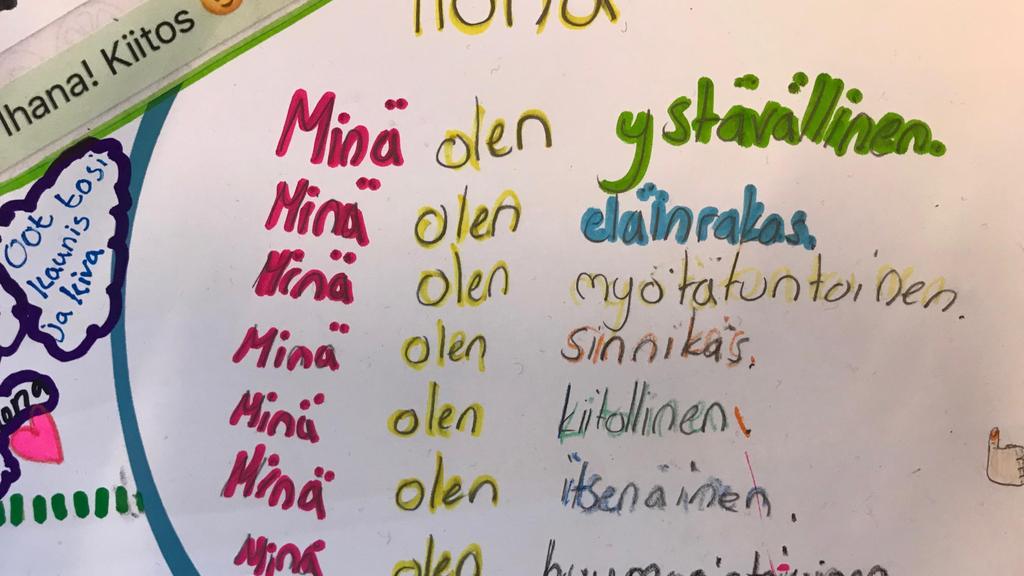 Ihana! Kiitos
Minä olen ystävällinen.
Minä olen eläinrakas.
Minä olen myötätuntoinen.
Minä olen sinnikäs.
Minä olen kiitollinen.
Minä olen itsenäinen.
Minä olen
Oot
kaunis tosi
ja kiva